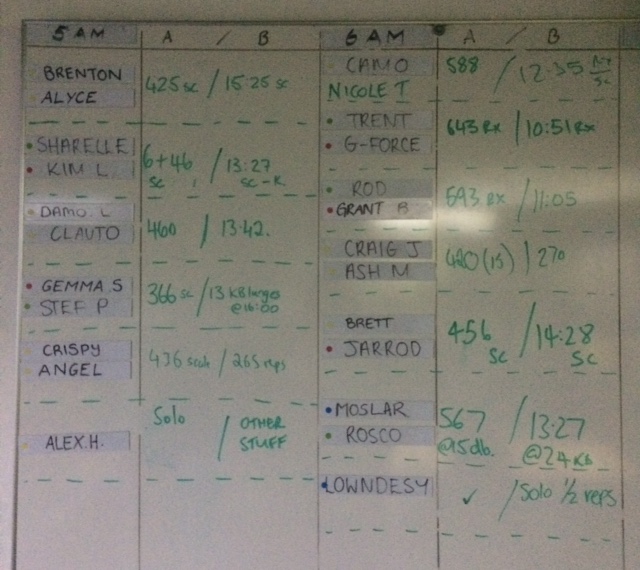 5 AM A / B
BRENTON
ALYCE
425 sc / 15:25 sc
SHARELLE
KIM L
6+46 / 13:27
sc sc-R
DAMO L
CLAUTO
460 / 13:42.
GEMMA S
STEF P
366 sc / 13 KB lunges
@16:00
CRISPY
ANGEL
436 scale / 265 reps
ALEX.H.
Solo / OTHER
STUFF
6 AM A / B
CAMO
NICOLE T
588 / 12:35
SC
TRENT
G-FORCE
643 Rx / 10:51 Rx
ROD
GRANT B
593 Rx / 11:05
CRAIG J
ASH M
420 (15) / 270
BRETT
JARROD
456 / 14:28
SC SC
MOSLAR
ROSCO
567 / 13:27
@15db. @24KB
LOWNDESY
✓ / Solo 1/2 reps